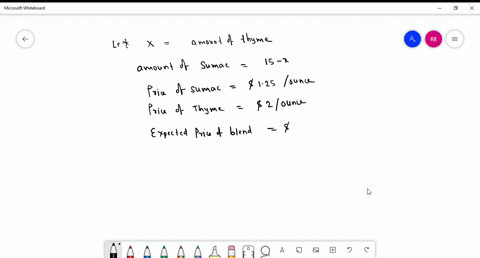 Microsoft Whiteboard
Let X = amount of thyme
RR
amount of Sumac = 15-x
Price of sumac = $ 1.25 /ounce
Price of Thyme = $ 2/ounce
Expected Price of blend = $